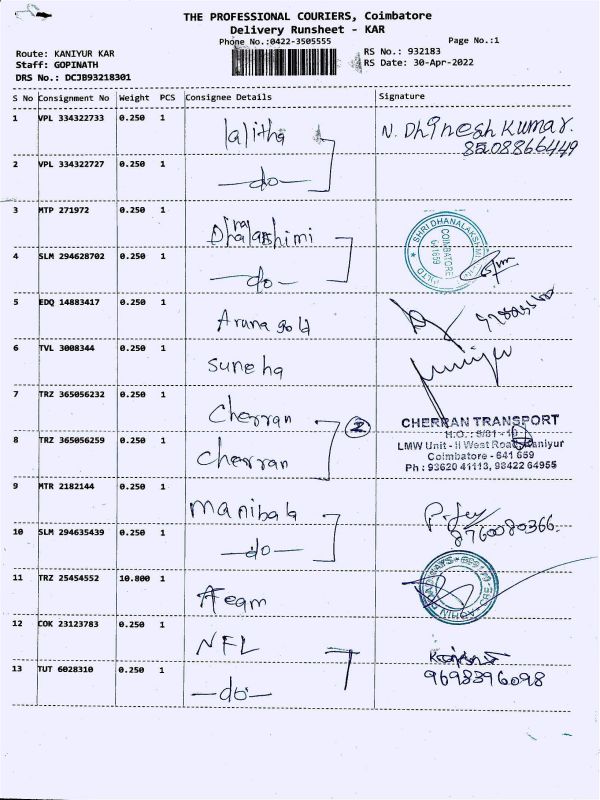 THE PROFESSIONAL COURIERS, Coimbatore
Delivery Runsheet - KAR
Phone No.:0422-3505555
Page No.:1
Route: KANIYUR KAR
RS No.: 932183
Staff: GOPINATH
RS Date: 30-Apr-2022
DRS No.: DCJB93218301
S No Consignment No Weight PCS Consignee Details Signature
1 VPL 334322733 0.250 1 lalitha N. Dhinesh Kumar.
8508866449
2 VPL 334322727 0.250 1 -do-
3 MTP 271972 0.250 1
SHRI DHANALAKSHMI
COIMBATORE
641659
4 SLM 294628702 0.250 1 -do-
5 EDQ 14883417 0.250 1 Aruna gold
6 TVL 3008344 0.250 1 suneha
7 TRZ 365056232 0.250 1 Cherran 2
CHERRAN TRANSPORT
8 TRZ 365056259 0.250 1 Cherran
LMW Unit - II West Road, Kaniyur
Coimbatore - 641 659
Ph : 93620 41113, 98422 64955
9 MTR 2182144 0.250 1 manibala
8760080366.
10 SLM 294635439 0.250 1 -do-
11 TRZ 25454552 10.800 1 Ateam
12 COK 23123783 0.250 1 NFL
13 TUT 6028310 0.250 1 -do- 9698396098